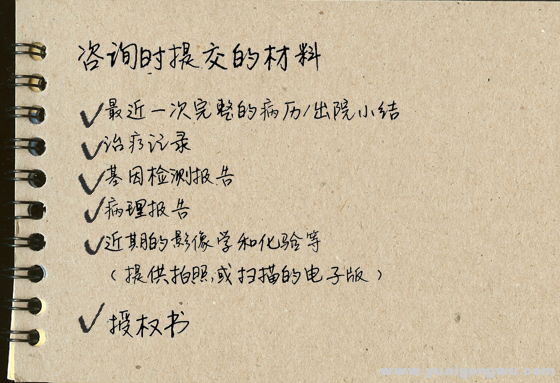 咨询时提交的材料
✓最近一次完整的病历/出院小结
✓治疗记录
✓基因检测报告
✓病理报告
✓近期的影像学和化验等
（提供拍照或扫描的电子版）
✓授权书